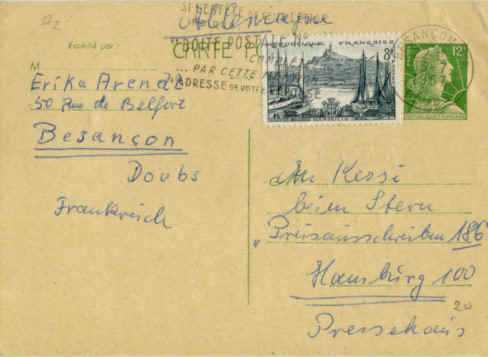 Allemagne
CARTE
Expédié par :
M
Erika Arendt
50 Rue de Belfort
Besançon
Doubs
Frankreich
BOITE POSTALE N°
...PAR CETTE
ADRESSE DE VOTRE
RÉPUBLIQUE FRANÇAISE
8F
BESANÇON
12F
An Kessi
beim Stern
"Preisausschreiben 186
Hamburg 100
20
Pressehaus